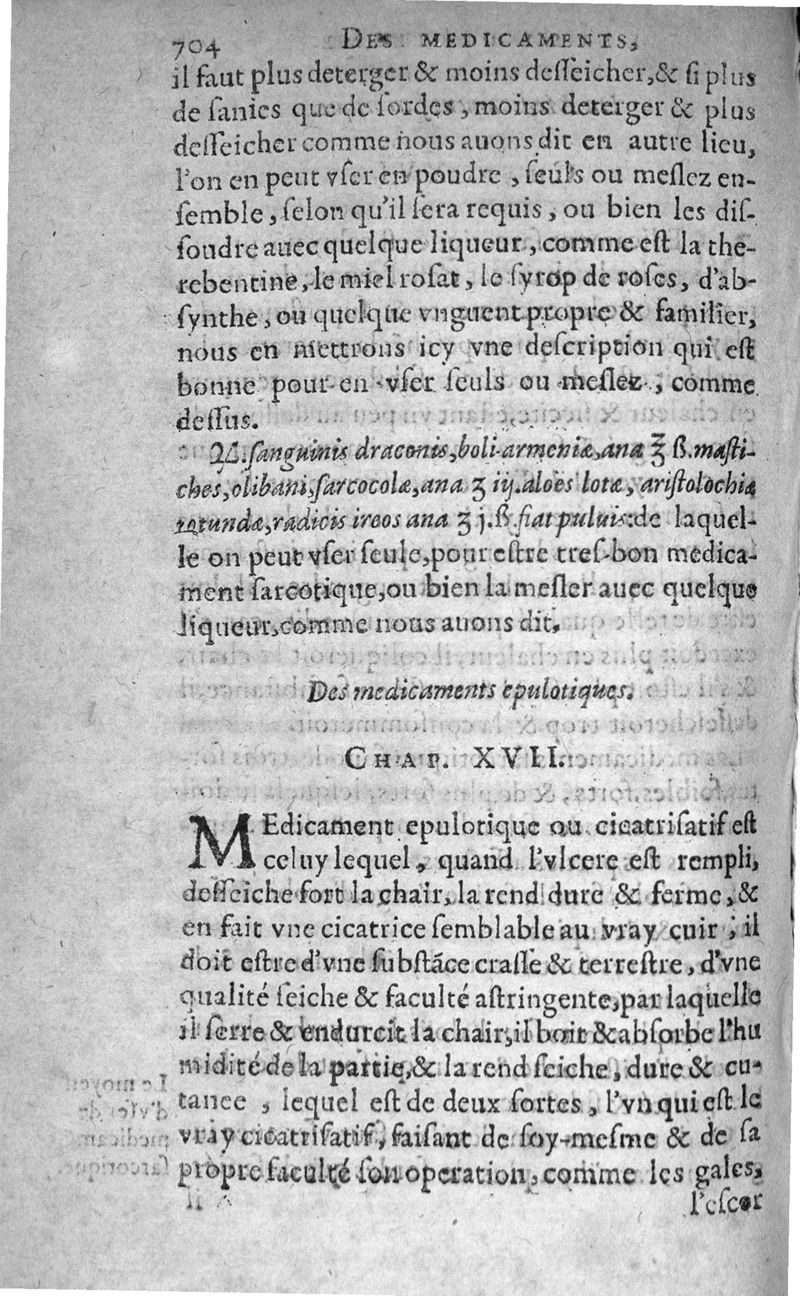 704 DES MEDICAMENTS,
il faut plus deterger & moins desſeicher,& ſi plus
de ſanies que de ſordes, moins deterger & plus
deſſeicher comme nous auons dit en autre lieu,
l'on en peut vſer en poudre, ſeuls ou meſlez en-
ſemble, ſelon qu'il ſera requis, ou bien les diſ-
ſoudre auec quelque liqueur, comme est la the-
rebentine, le miel roſat, le ſyrop de roſes, d'ab-
ſynthe, ou quelque vnguent propre & familier,
nous en mettrons icy vne deſcription qui est
bonne pour en vſer ſeuls ou meſlez, comme
deſſus.
℞. ſanguinis draconis, boli armeniæ, ana ʒ ß. maſti-
ches, olibani, ſarcocolæ, ana ʒ iij. aloës lotæ, ariſtolochiæ
rotundæ, radicis ireos ana ʒ j. ß. fiat puluis: de laquel-
le on peut vſer ſeule, pour eſtre treſ-bon medica-
ment ſarcotique, ou bien la meſler auec quelque
liqueur, comme nous auons dit.
Des medicaments epulotiques.
CHAP. XVII.
MEdicament epulotique ou cicatriſatif est
celuy lequel, quand l'vlcere est rempli,
deſſeiche fort la chair, la rend dure & ferme, &
en fait vne cicatrice ſemblable au vray cuir; il
doit eſtre d'vne ſubſtãce craſſe & terreſtre, d'vne
qualité ſeiche & faculté aſtringente, par laquelle
il ſerre & endurcit la chair, il boit & abſorbe l'hu
midité de la partie, & la rend ſeiche, dure & cu-
tanee, lequel est de deux ſortes, l'vn qui est le
vray cicatriſatif, faiſant de ſoy-meſme & de ſa
propre faculté ſon operation, comme les gales,
l'eſcor